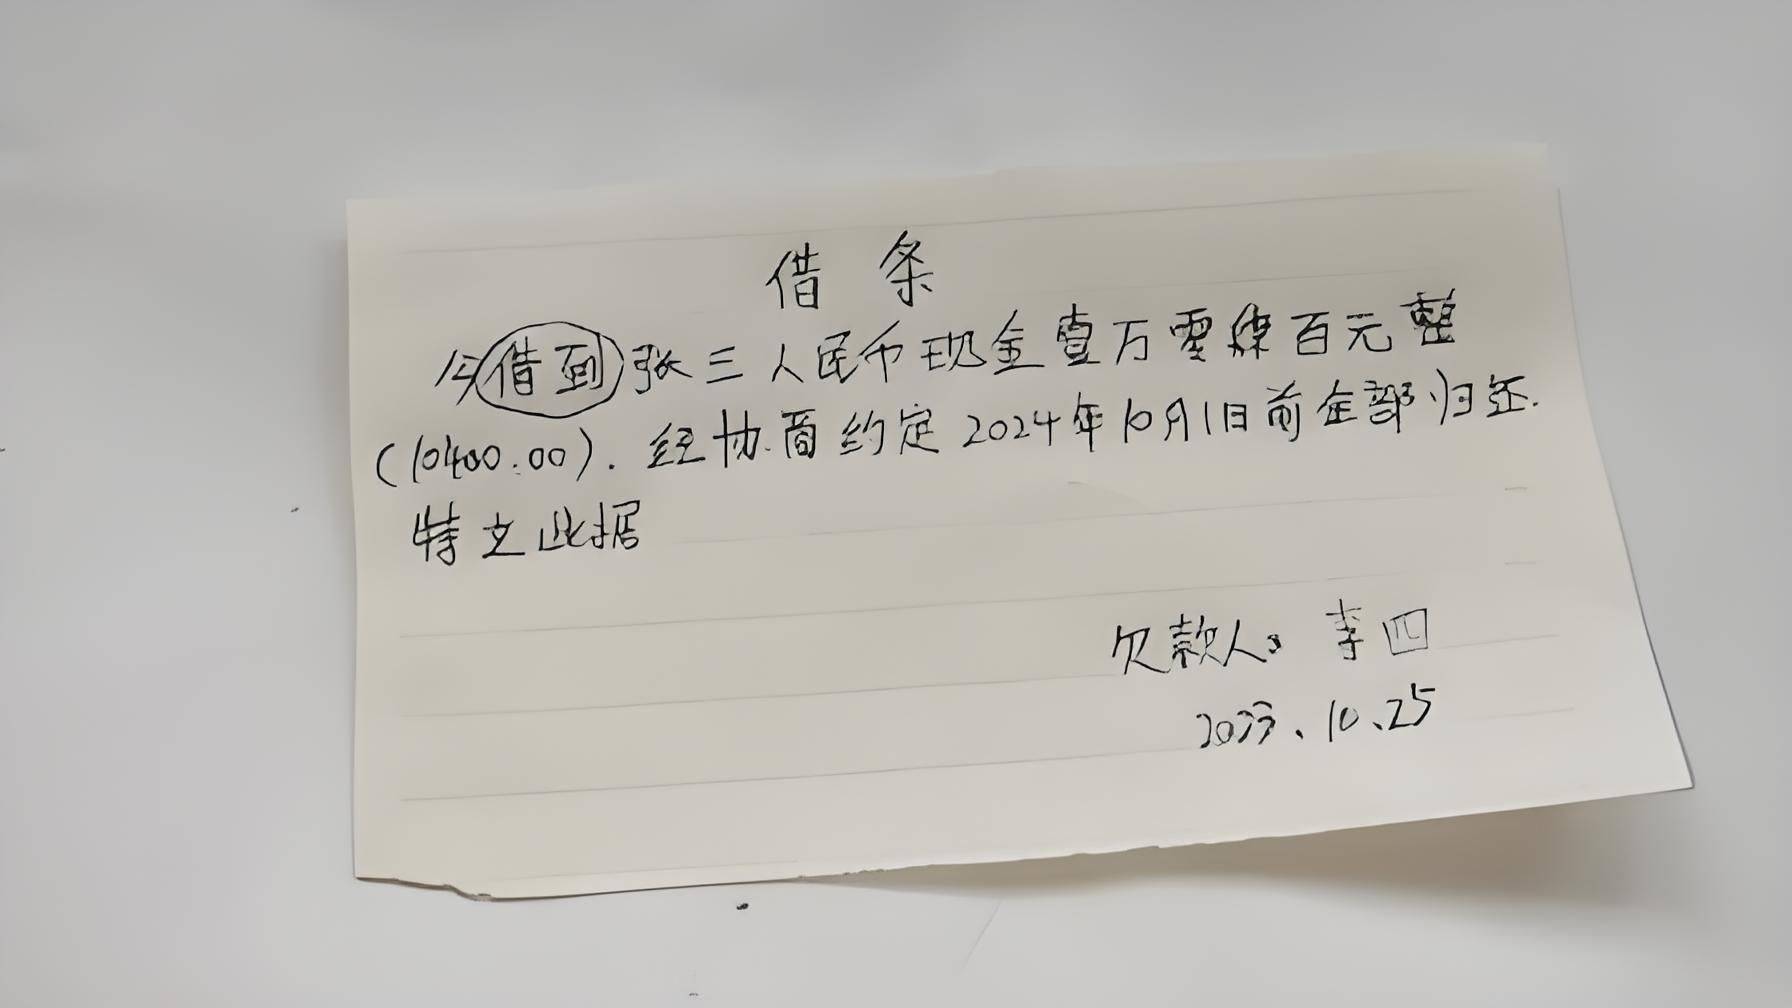 借条
今借到张三人民币现金壹万零肆百元整
(10400.00).经协商约定2024年10月1日前全部归还.
特立此据
欠款人: 李四
2023、10、25